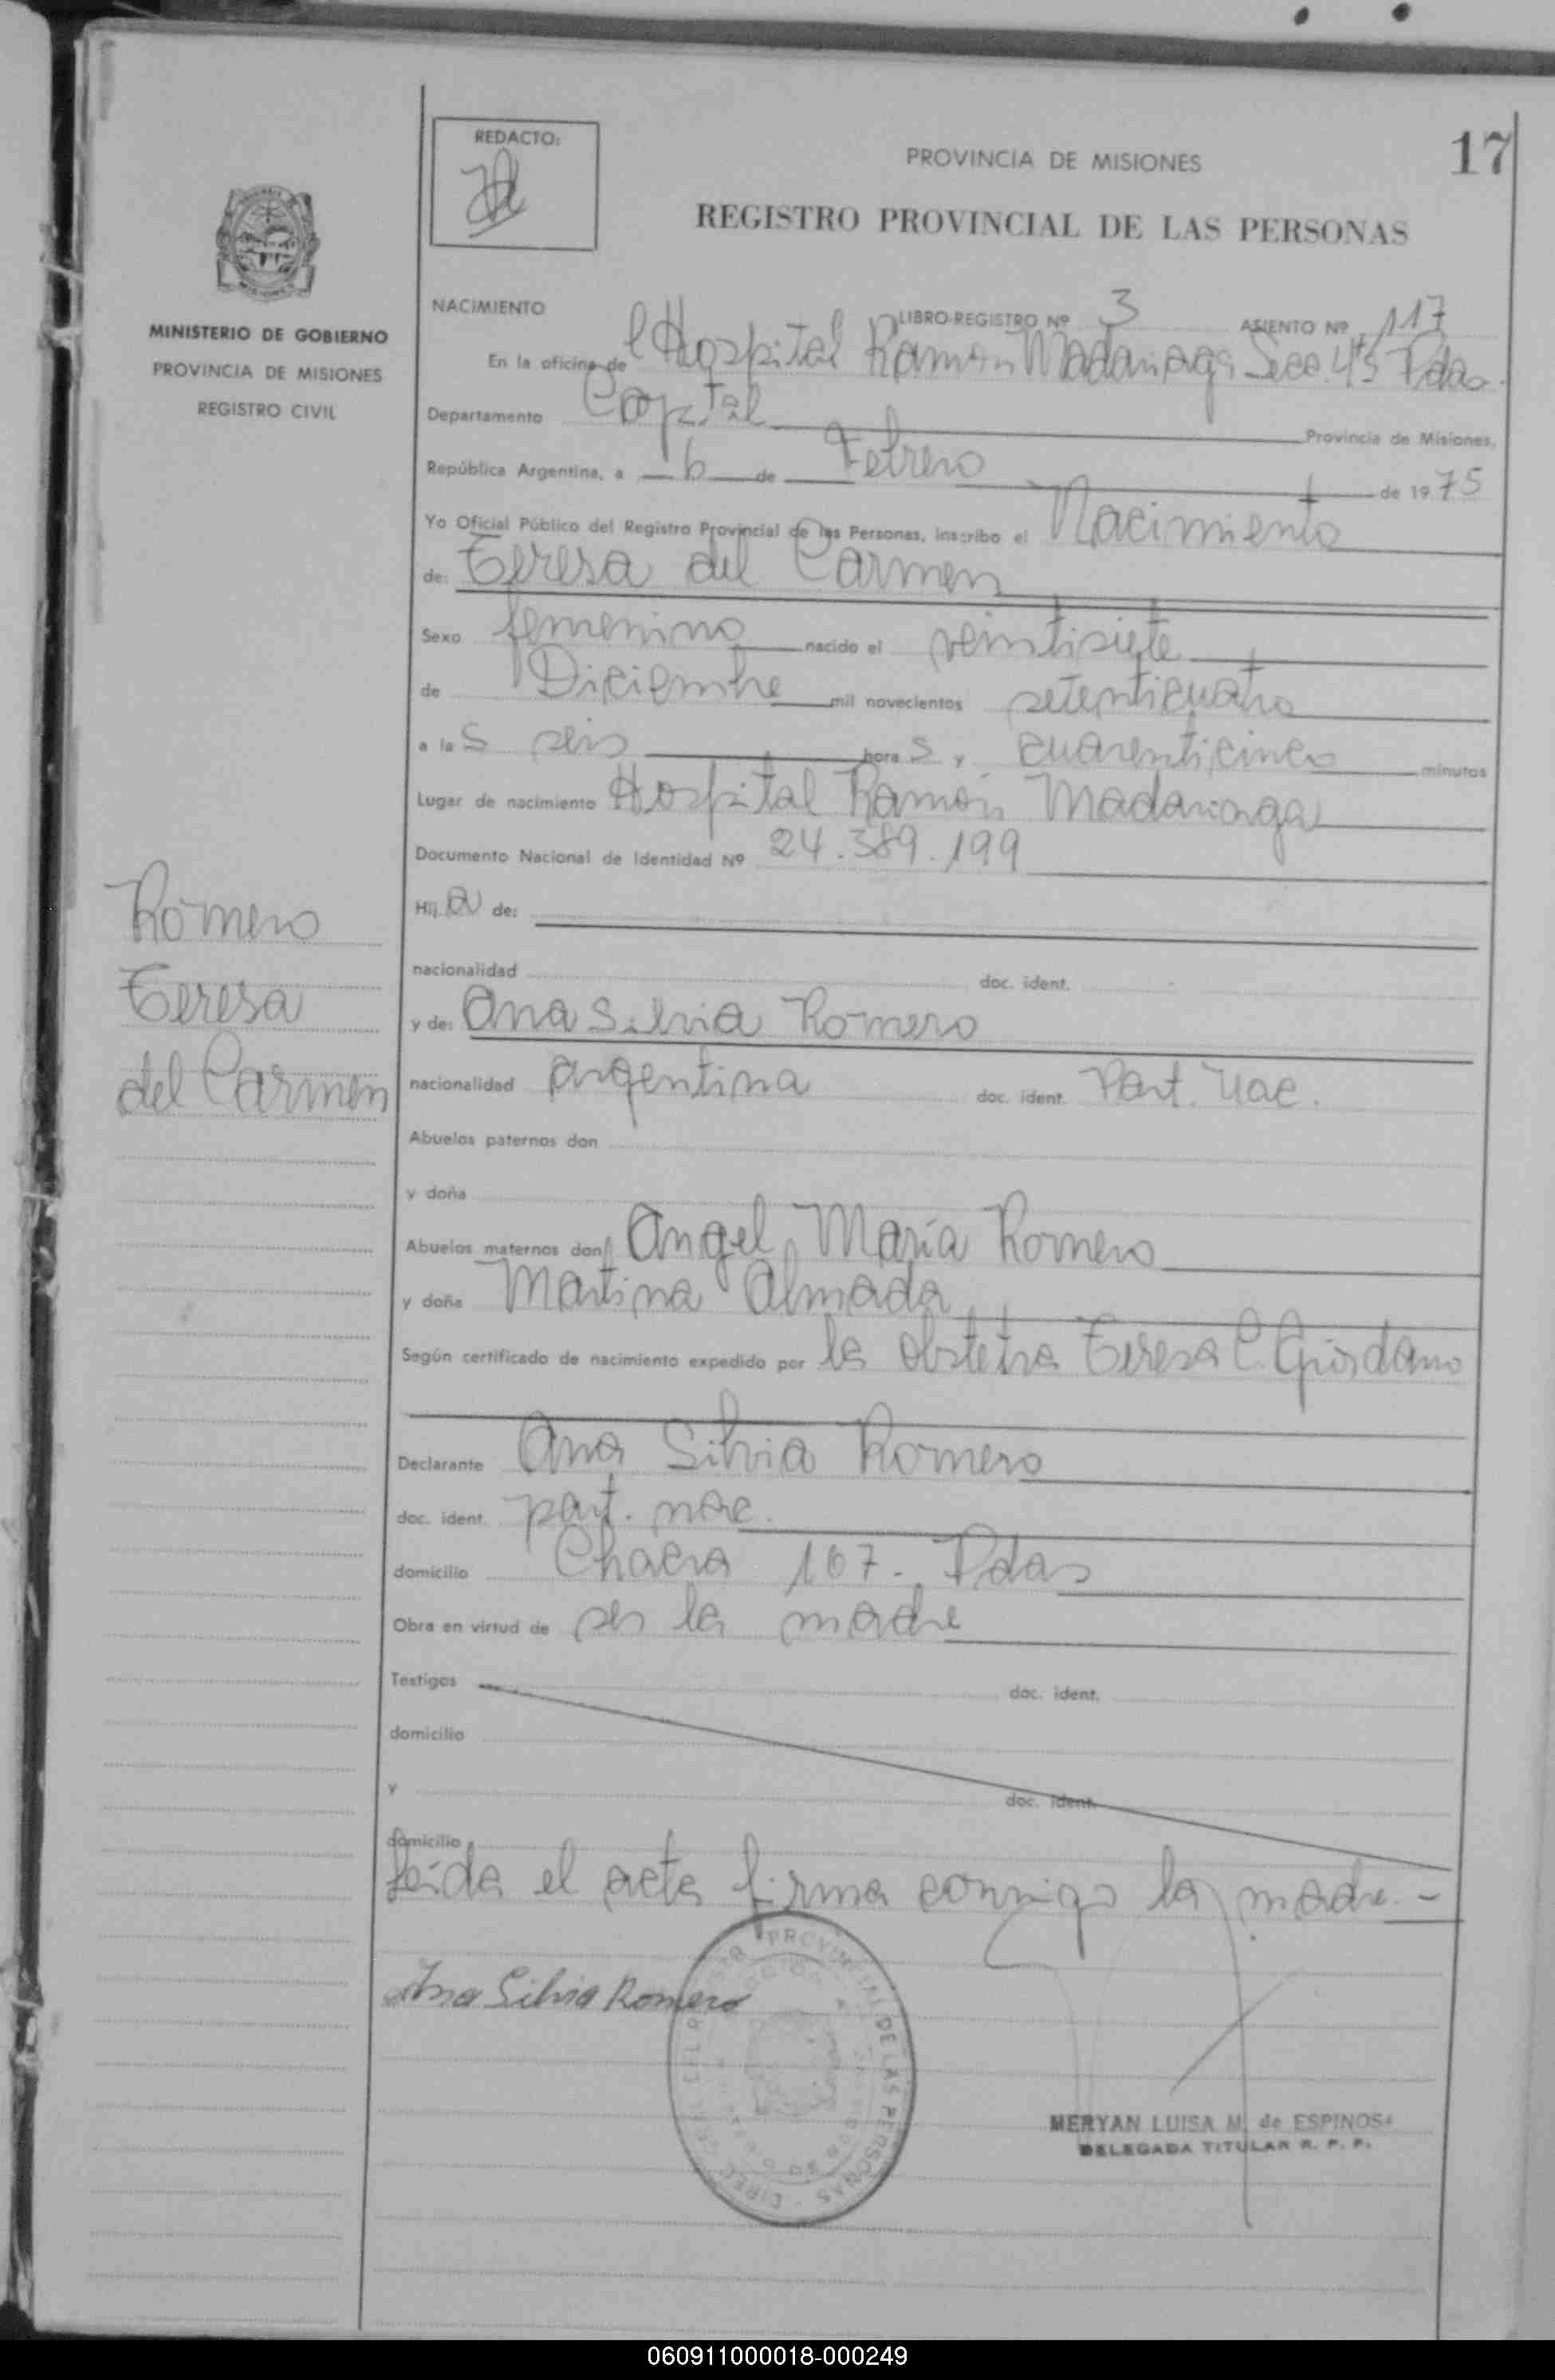 REDACTO:
PROVINCIA DE MISIONES
17
REGISTRO PROVINCIAL DE LAS PERSONAS
MINISTERIO DE GOBIERNO
PROVINCIA DE MISIONES
REGISTRO CIVIL
NACIMIENTO LIBRO-REGISTRO Nº 3 ASIENTO Nº 117
En la oficina de l Hospital Ramón Madariaga Secc. 4ta Pdas.
Departamento Capital Provincia de Misiones,
República Argentina, a 6 de Febrero de 1975
Yo Oficial Público del Registro Provincial de las Personas, inscribo el Nacimiento
de: Teresa del Carmen
Sexo femenino nacido el veintisiete
de Diciembre mil novecientos setenticuatro
a las seis horas y cuarenticinco minutos
Lugar de nacimiento Hospital Ramón Madariaga
Documento Nacional de Identidad Nº 24.389.199
Hija de:
nacionalidad doc. ident.
y de: Ana Silvia Romero
nacionalidad argentina doc. ident. Part. nac.
Abuelos paternos don
y doña
Abuelos maternos don Angel María Romero
y doña Martina Almada
Según certificado de nacimiento expedido por la obstetra Teresa C. Giordano
Declarante Ana Silvia Romero
doc. ident. part. nac.
domicilio Chacra 167. Pdas
Obra en virtud de ser la madre
Testigos doc. ident.
domicilio
y doc. ident.
domicilio
Leída el acta firma conmigo la madre.-
Ana Silvia Romero
Romero
Teresa
del Carmen
PROVINCIAL DE LAS PERSONAS
MERYAN LUISA M. de ESPINOSA
DELEGADA TITULAR R. P. P.
060911000018-000249